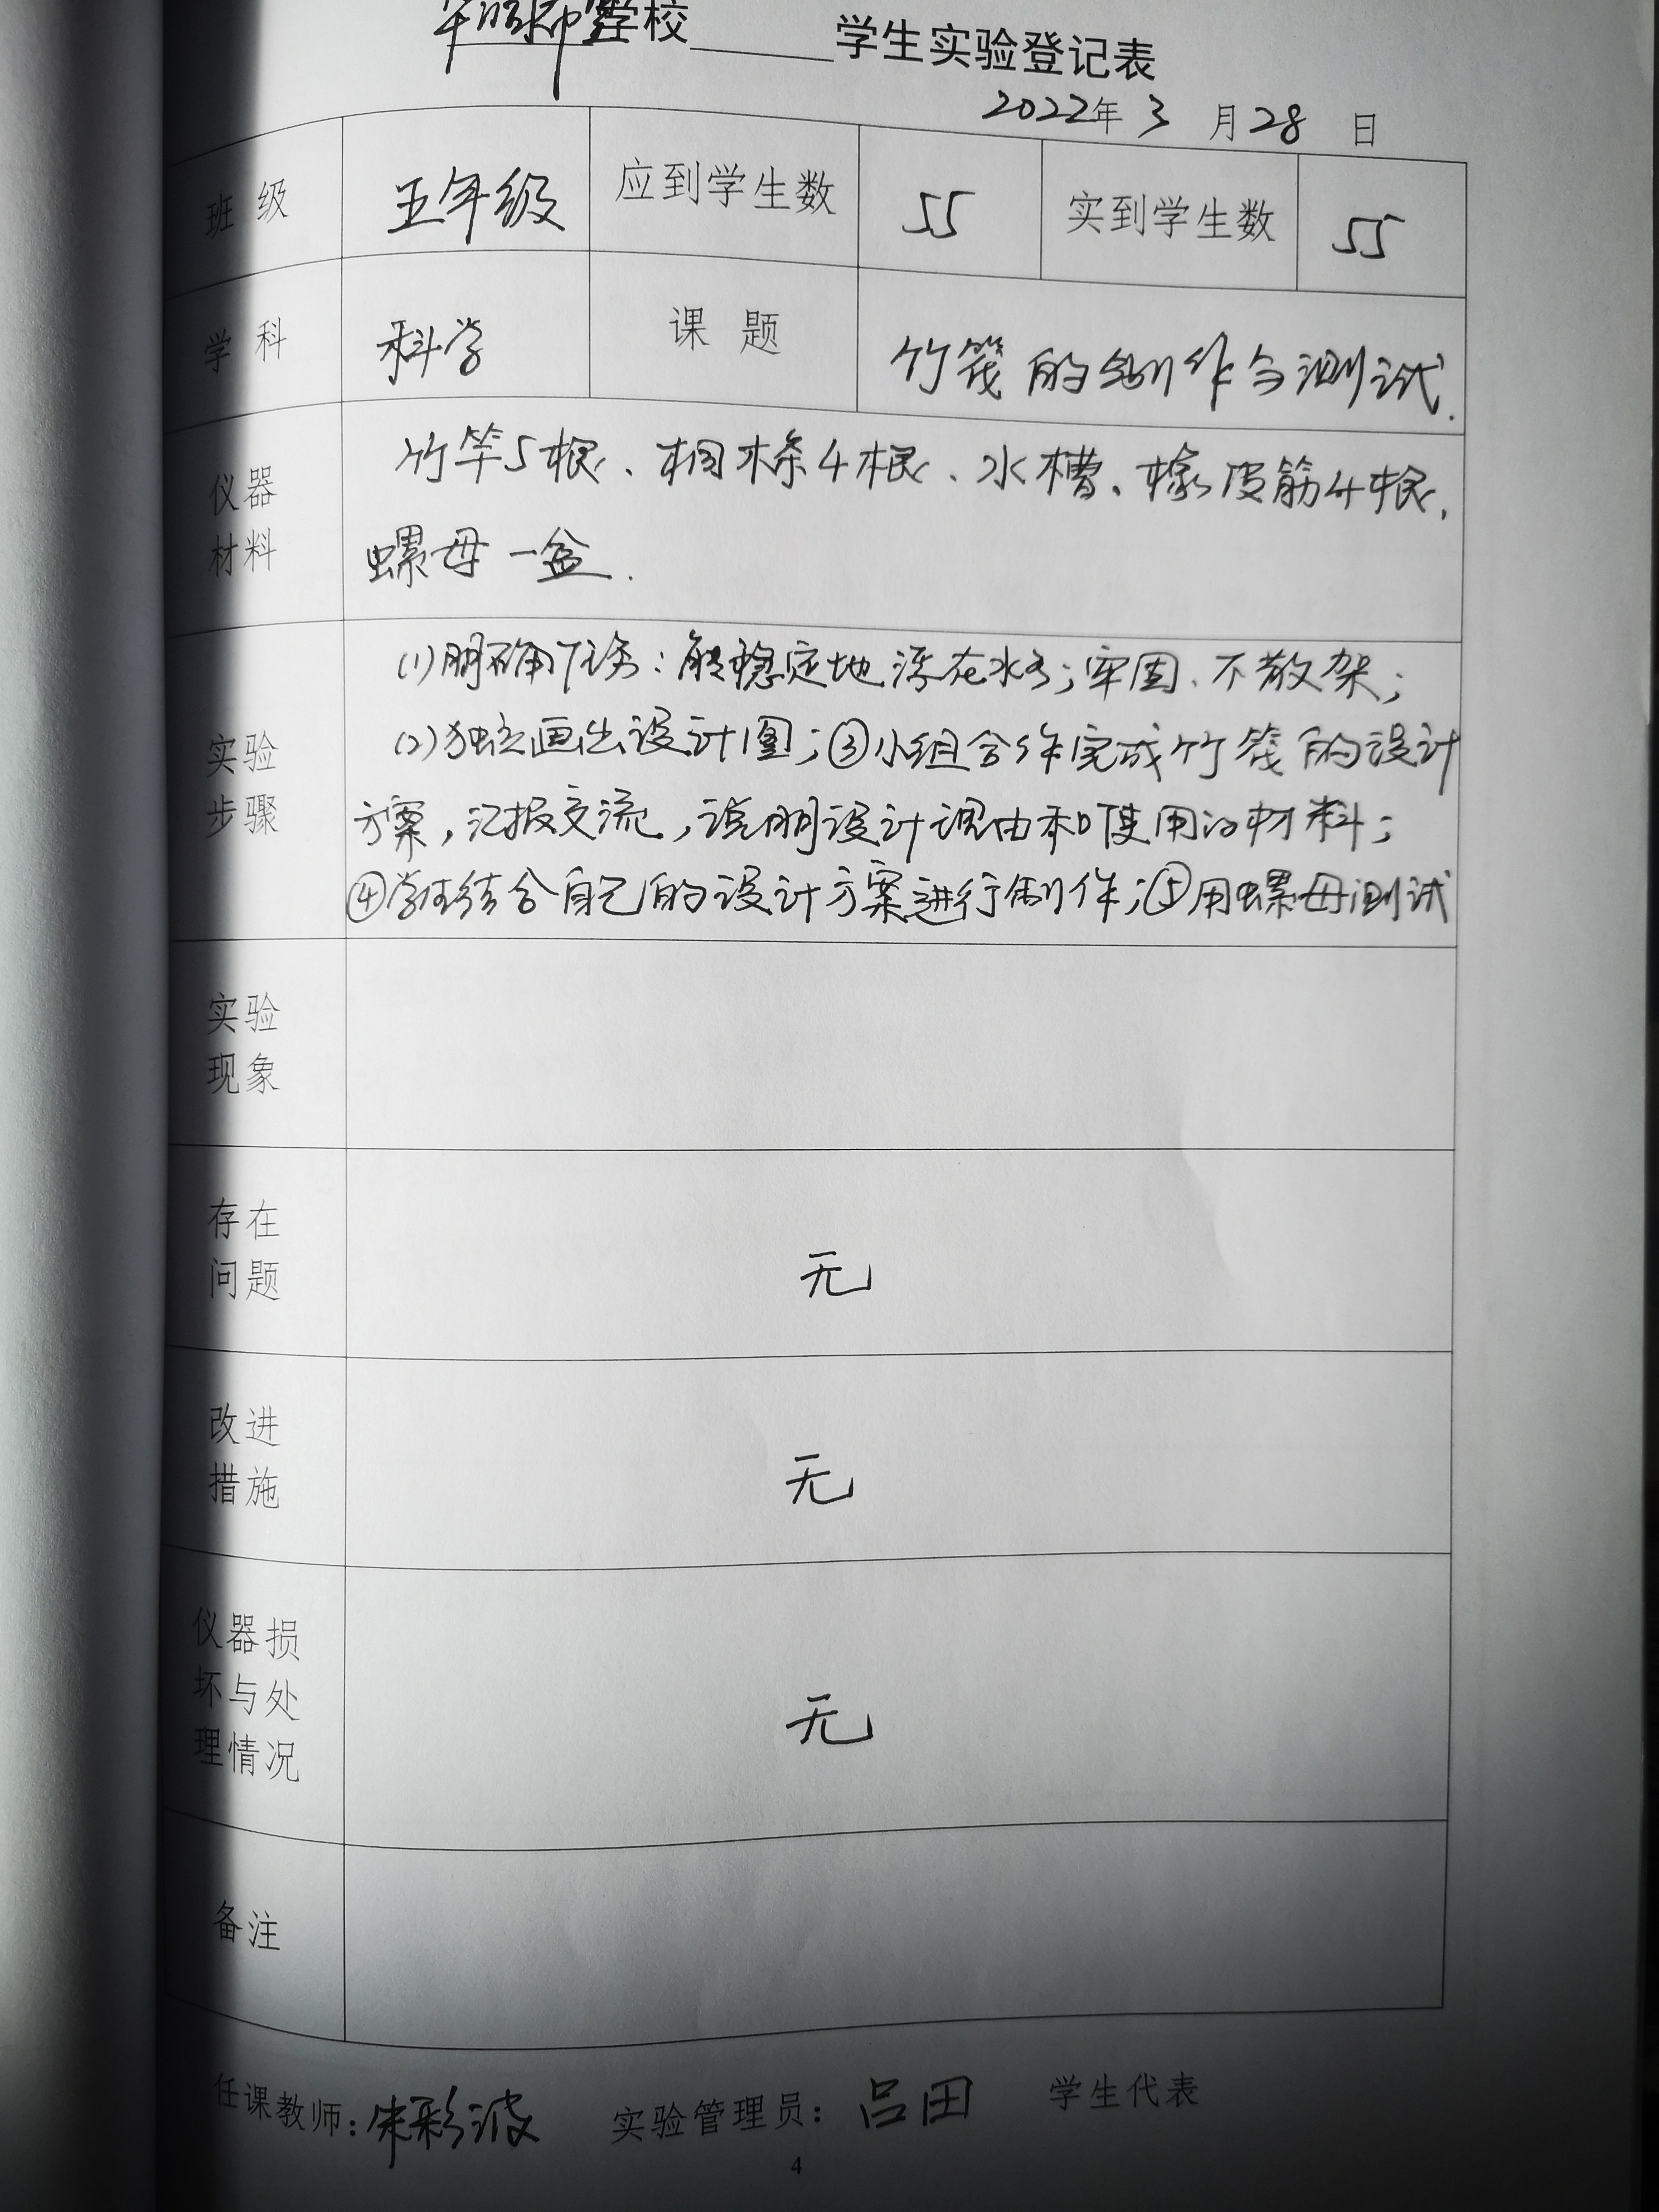 学校 学生实验登记表
2022年 3 月 28 日
班 级 五年级 应到学生数 55 实到学生数 55
学 科 科学 课 题 竹筏的制作与测试.
仪器
材料
竹竿5根、相木条4根、水槽、橡皮筋4根,
螺母一盆.
实验
步骤
(1)明确任务:能稳定地浮在水名;牢固、不散架;
(2)独立画出设计图;③小组合作完成竹筏的设计
方案,汇报交流,说明设计理由和使用的材料;
④学生结合自己的设计方案进行制作;⑤用螺母测试
实验
现象
存在
问题
无
改进
措施
无
仪器损
坏与处
理情况
无
备注
任课教师:朱彩波 实验管理员:吕田 学生代表
4